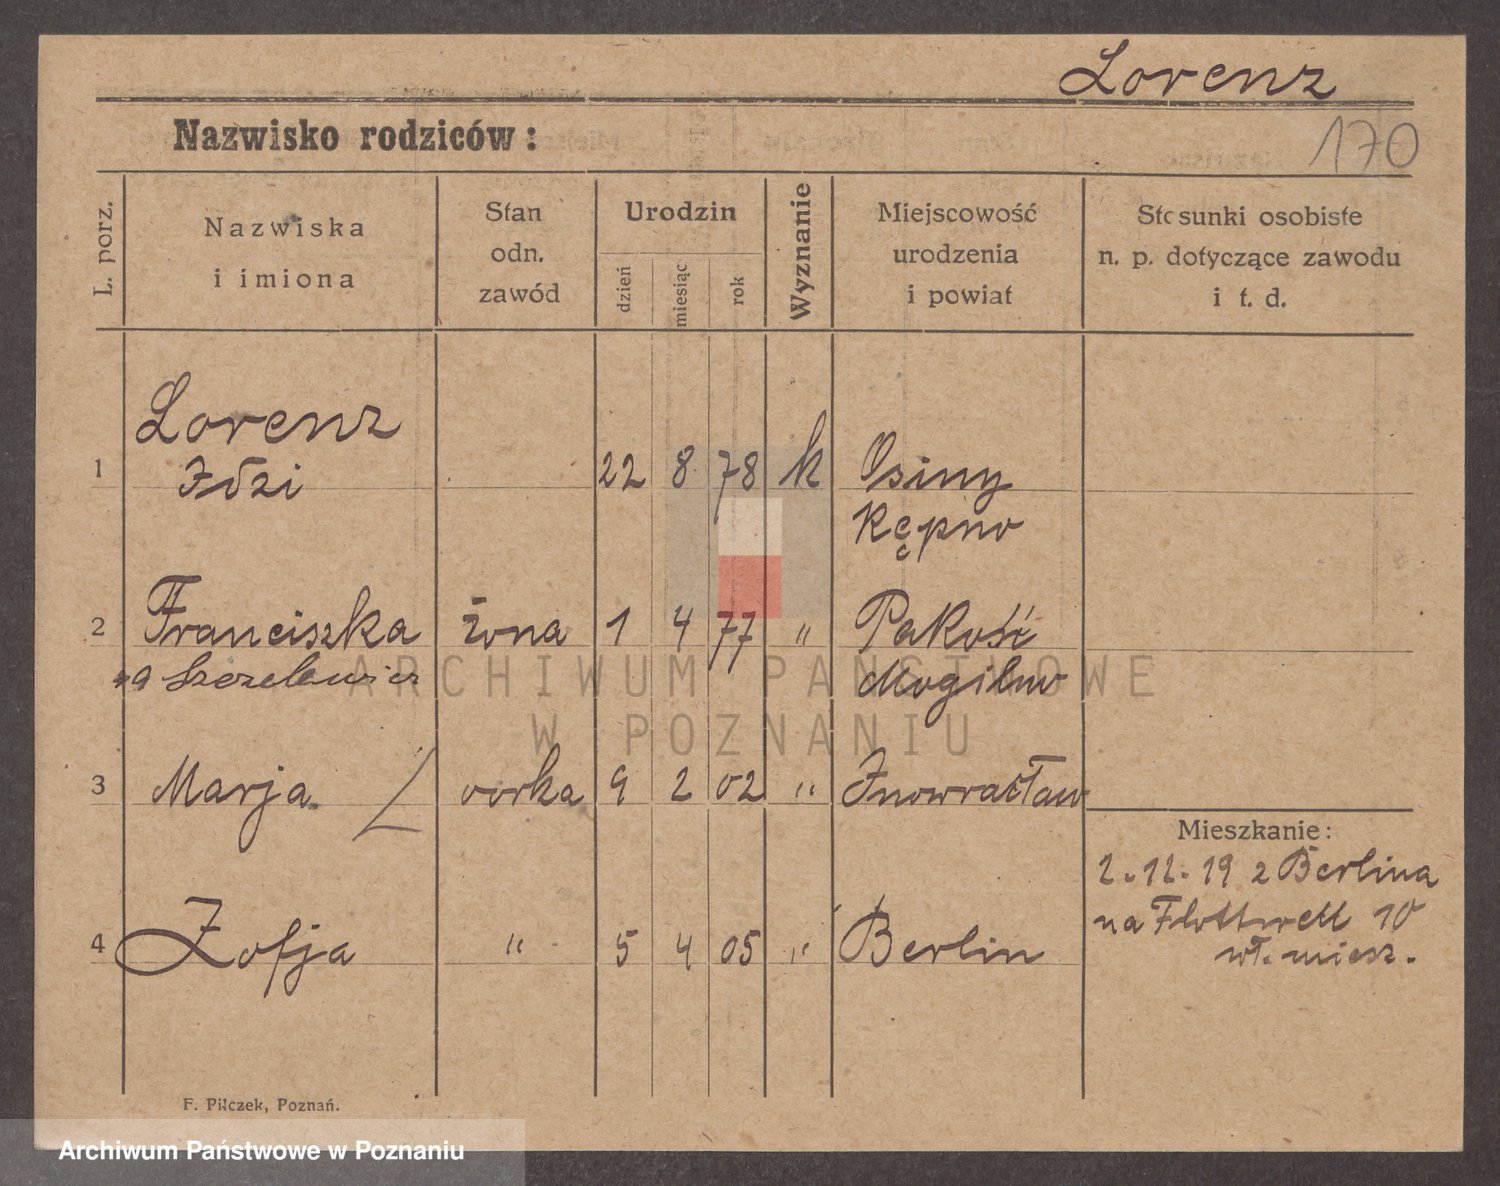 Lorenz
170
Nazwisko rodziców:
L. porz.
Nazwiska
i imiona
Stan
odn.
zawód
Urodzin
dzień
miesiąc
rok
Wyznanie
Miejscowość
urodzenia
i powiat
Stosunki osobiste
n. p. dotyczące zawodu
i t. d.
Lorenz
1 Idzi 22 8 78 k Osiny
Kępno
2 Franciszka żona 1 4 77 " Pakość
Mogilno
3 Marja córka 9 2 02 " Inowrocław
4 Zofja " 5 4 05 " Berlin
Mieszkanie:
2.12.19 z Berlina
na Flottwell 10
wł. miesz.
F. Pilczek, Poznań.
ARCHIWUM PAŃSTWOWE
W POZNANIU
Archiwum Państwowe w Poznaniu